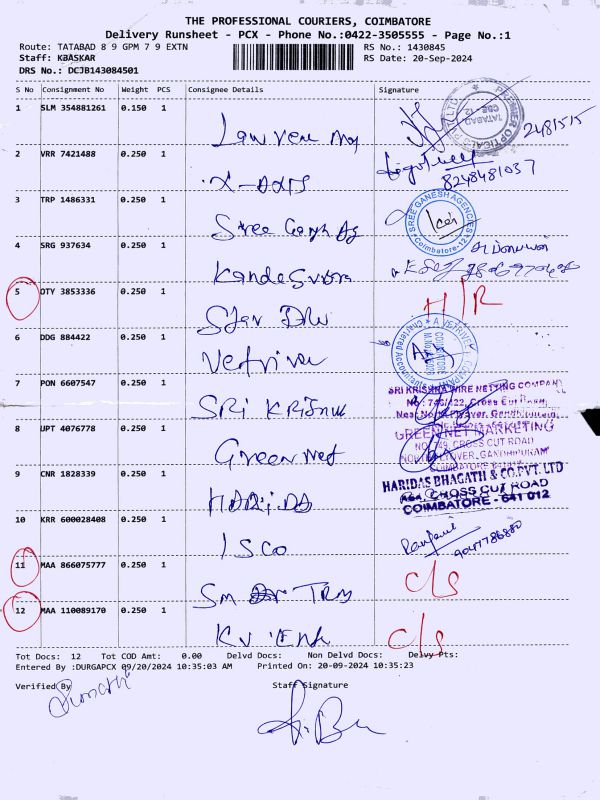 THE PROFESSIONAL COURIERS, COIMBATORE
Delivery Runsheet - PCX - Phone No.:0422-3505555 - Page No.:1
Route: TATABAD 8 9 GPM 7 9 EXTN RS No.: 1430845
Staff: KBASKAR RS Date: 20-Sep-2024
DRS No.: DCJB143084501
S No Consignment No Weight PCS Consignee Details Signature
1 SLM 354881261 0.150 1
PREMIER OPTICALS PVT LTD TATABAD CBE-12
2481515
2 VRR 7421488 0.250 1
8248481037
3 TRP 1486331 0.250 1
Sree Ganesh Ag
SREE GANESH AGENCIES Coimbatore-12
4 SRG 937634 0.250 1
5 OTY 3853336 0.250 1
Star
H/R
6 DDG 884422 0.250 1
Vetrivel
A VETRIVEL Chartered Accountants COIMBATORE
7 PON 6607547 0.250 1
SRI KRISHNA
SRI KRISHNA WIRE NETTING COMPANY
Cross Cut Road,
8 UPT 4076778 0.250 1
Green net
GREEN NET MARKETING
NO. 749, CROSS CUT ROAD
GANDHIPURAM
COIMBATORE
9 CNR 1828339 0.250 1
HARI.DA
HARIDAS BHAGATH & CO.PVT. LTD
CROSS CUT ROAD
COIMBATORE - 641 012
10 KRR 600028408 0.250 1
ISCO
11 MAA 866075777 0.250 1
Sm
C/S
12 MAA 110089170 0.250 1
C/S
Tot Docs: 12 Tot COD Amt: 0.00 Delvd Docs: Non Delvd Docs: Delvy Pts:
Entered By :DURGAPCX 09/20/2024 10:35:03 AM Printed On: 20-09-2024 10:35:23
Verified By Staff Signature